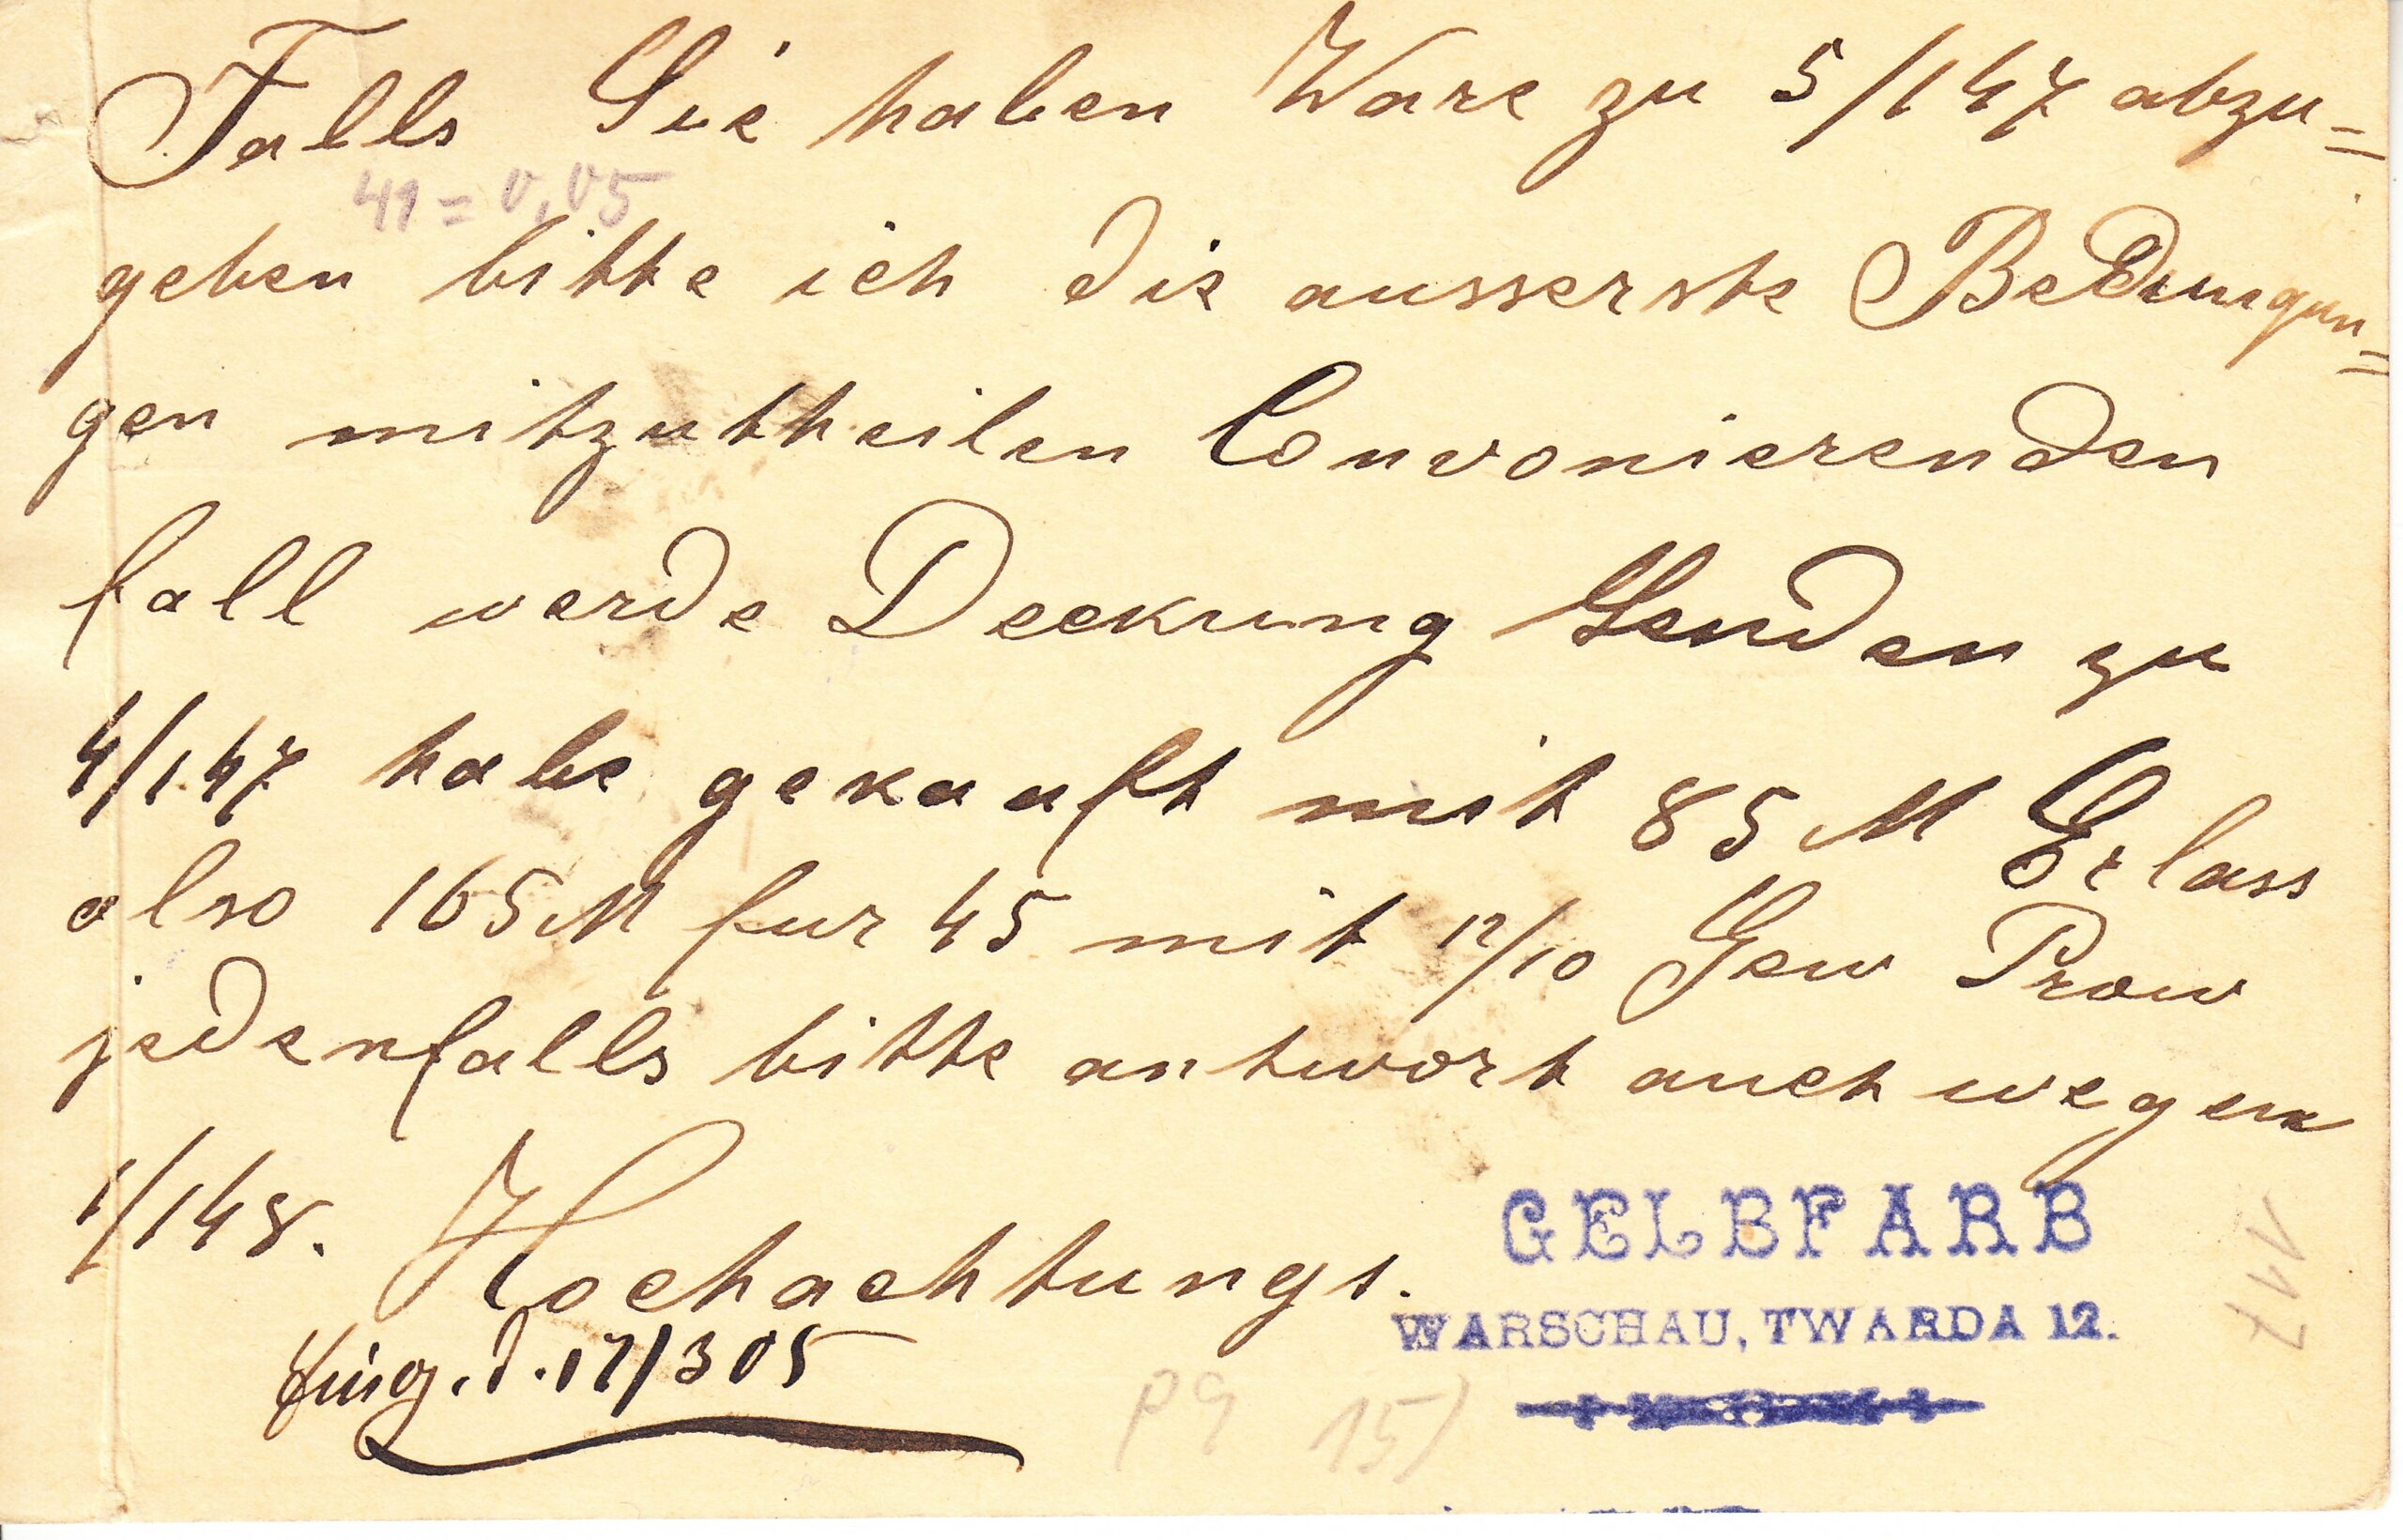 Falls Sie haben Ware zu 5/147 abzu=
41 = 0,05
geben bitte ich die ausserste Bedingun=
gen mitzutheilen Convonierenden
fall werde Deckung Senden zu
4/147 habe gekauft mit 85 M Erlass
also 165 M fur 45 mit 12/10 Gew Prow
jedenfalls bitte antwort auch wegen
1/148. Hochachtungs.
GELBFARB
WARSCHAU, TWARDA 12.
Eing. d. 17/3 05
P9 15)